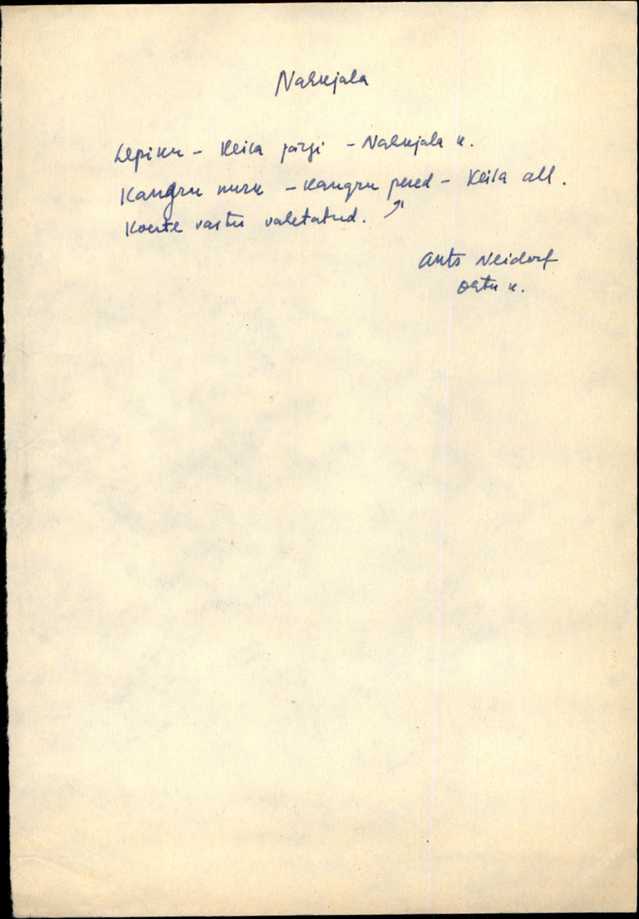 Nahkjala
Lepiku – Keila järgi – Nahkjala k.
Kangru nurk – Kangru pered – Keila all.
Koerte vastu valetatud. ↗
Ants Neidorf
Ohtu k.